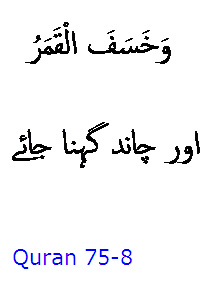 وَخَسَفَ الْقَمَرُ
اور چاند گہنا جائے
Quran 75-8